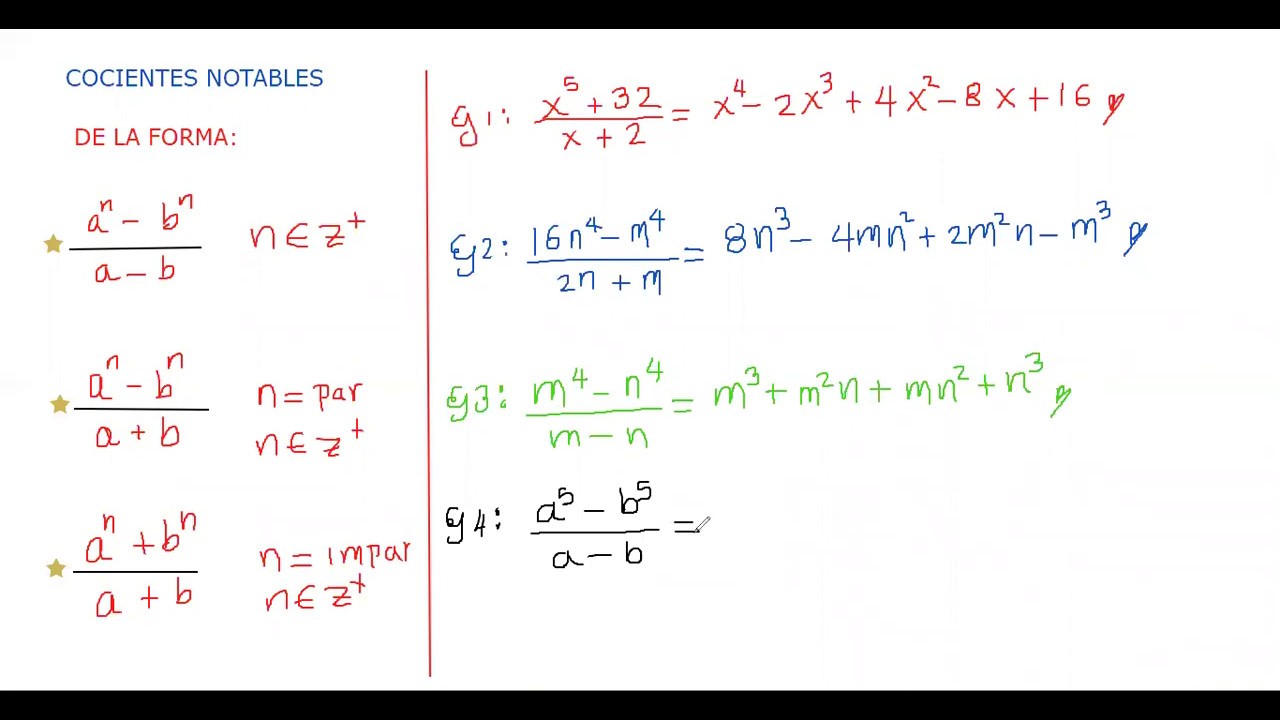 COCIENTES NOTABLES
DE LA FORMA:
a^n - b^n / a - b   n ∈ z^+
a^n - b^n / a + b   n = par
n ∈ z^+
a^n + b^n / a + b   n = impar
n ∈ z^+
g1: x^5 + 32 / x + 2 = x^4 - 2x^3 + 4x^2 - 8x + 16
g2: 16n^4 - m^4 / 2n + m = 8n^3 - 4mn^2 + 2m^2n - m^3
g3: m^4 - n^4 / m - n = m^3 + m^2n + mn^2 + n^3
g4: a^5 - b^5 / a - b =